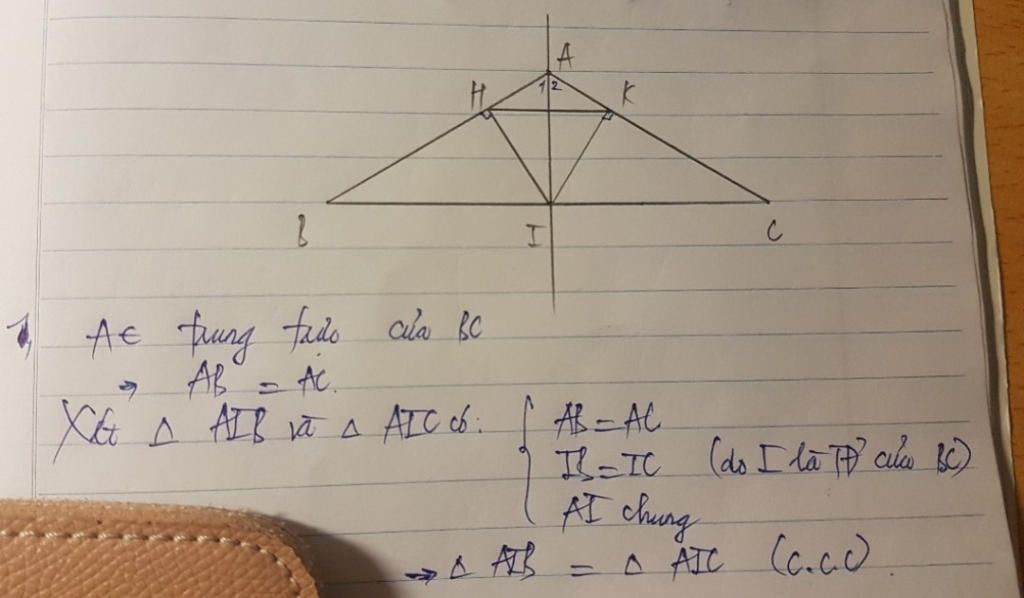 A
1 2
H K
B I C
1, A ∈ trung trực của BC
→ AB = AC.
Xét Δ AIB và Δ AIC có: { AB = AC
IB = IC (do I là TĐ của BC)
AI chung
→ Δ AIB = Δ AIC (c.c.c).